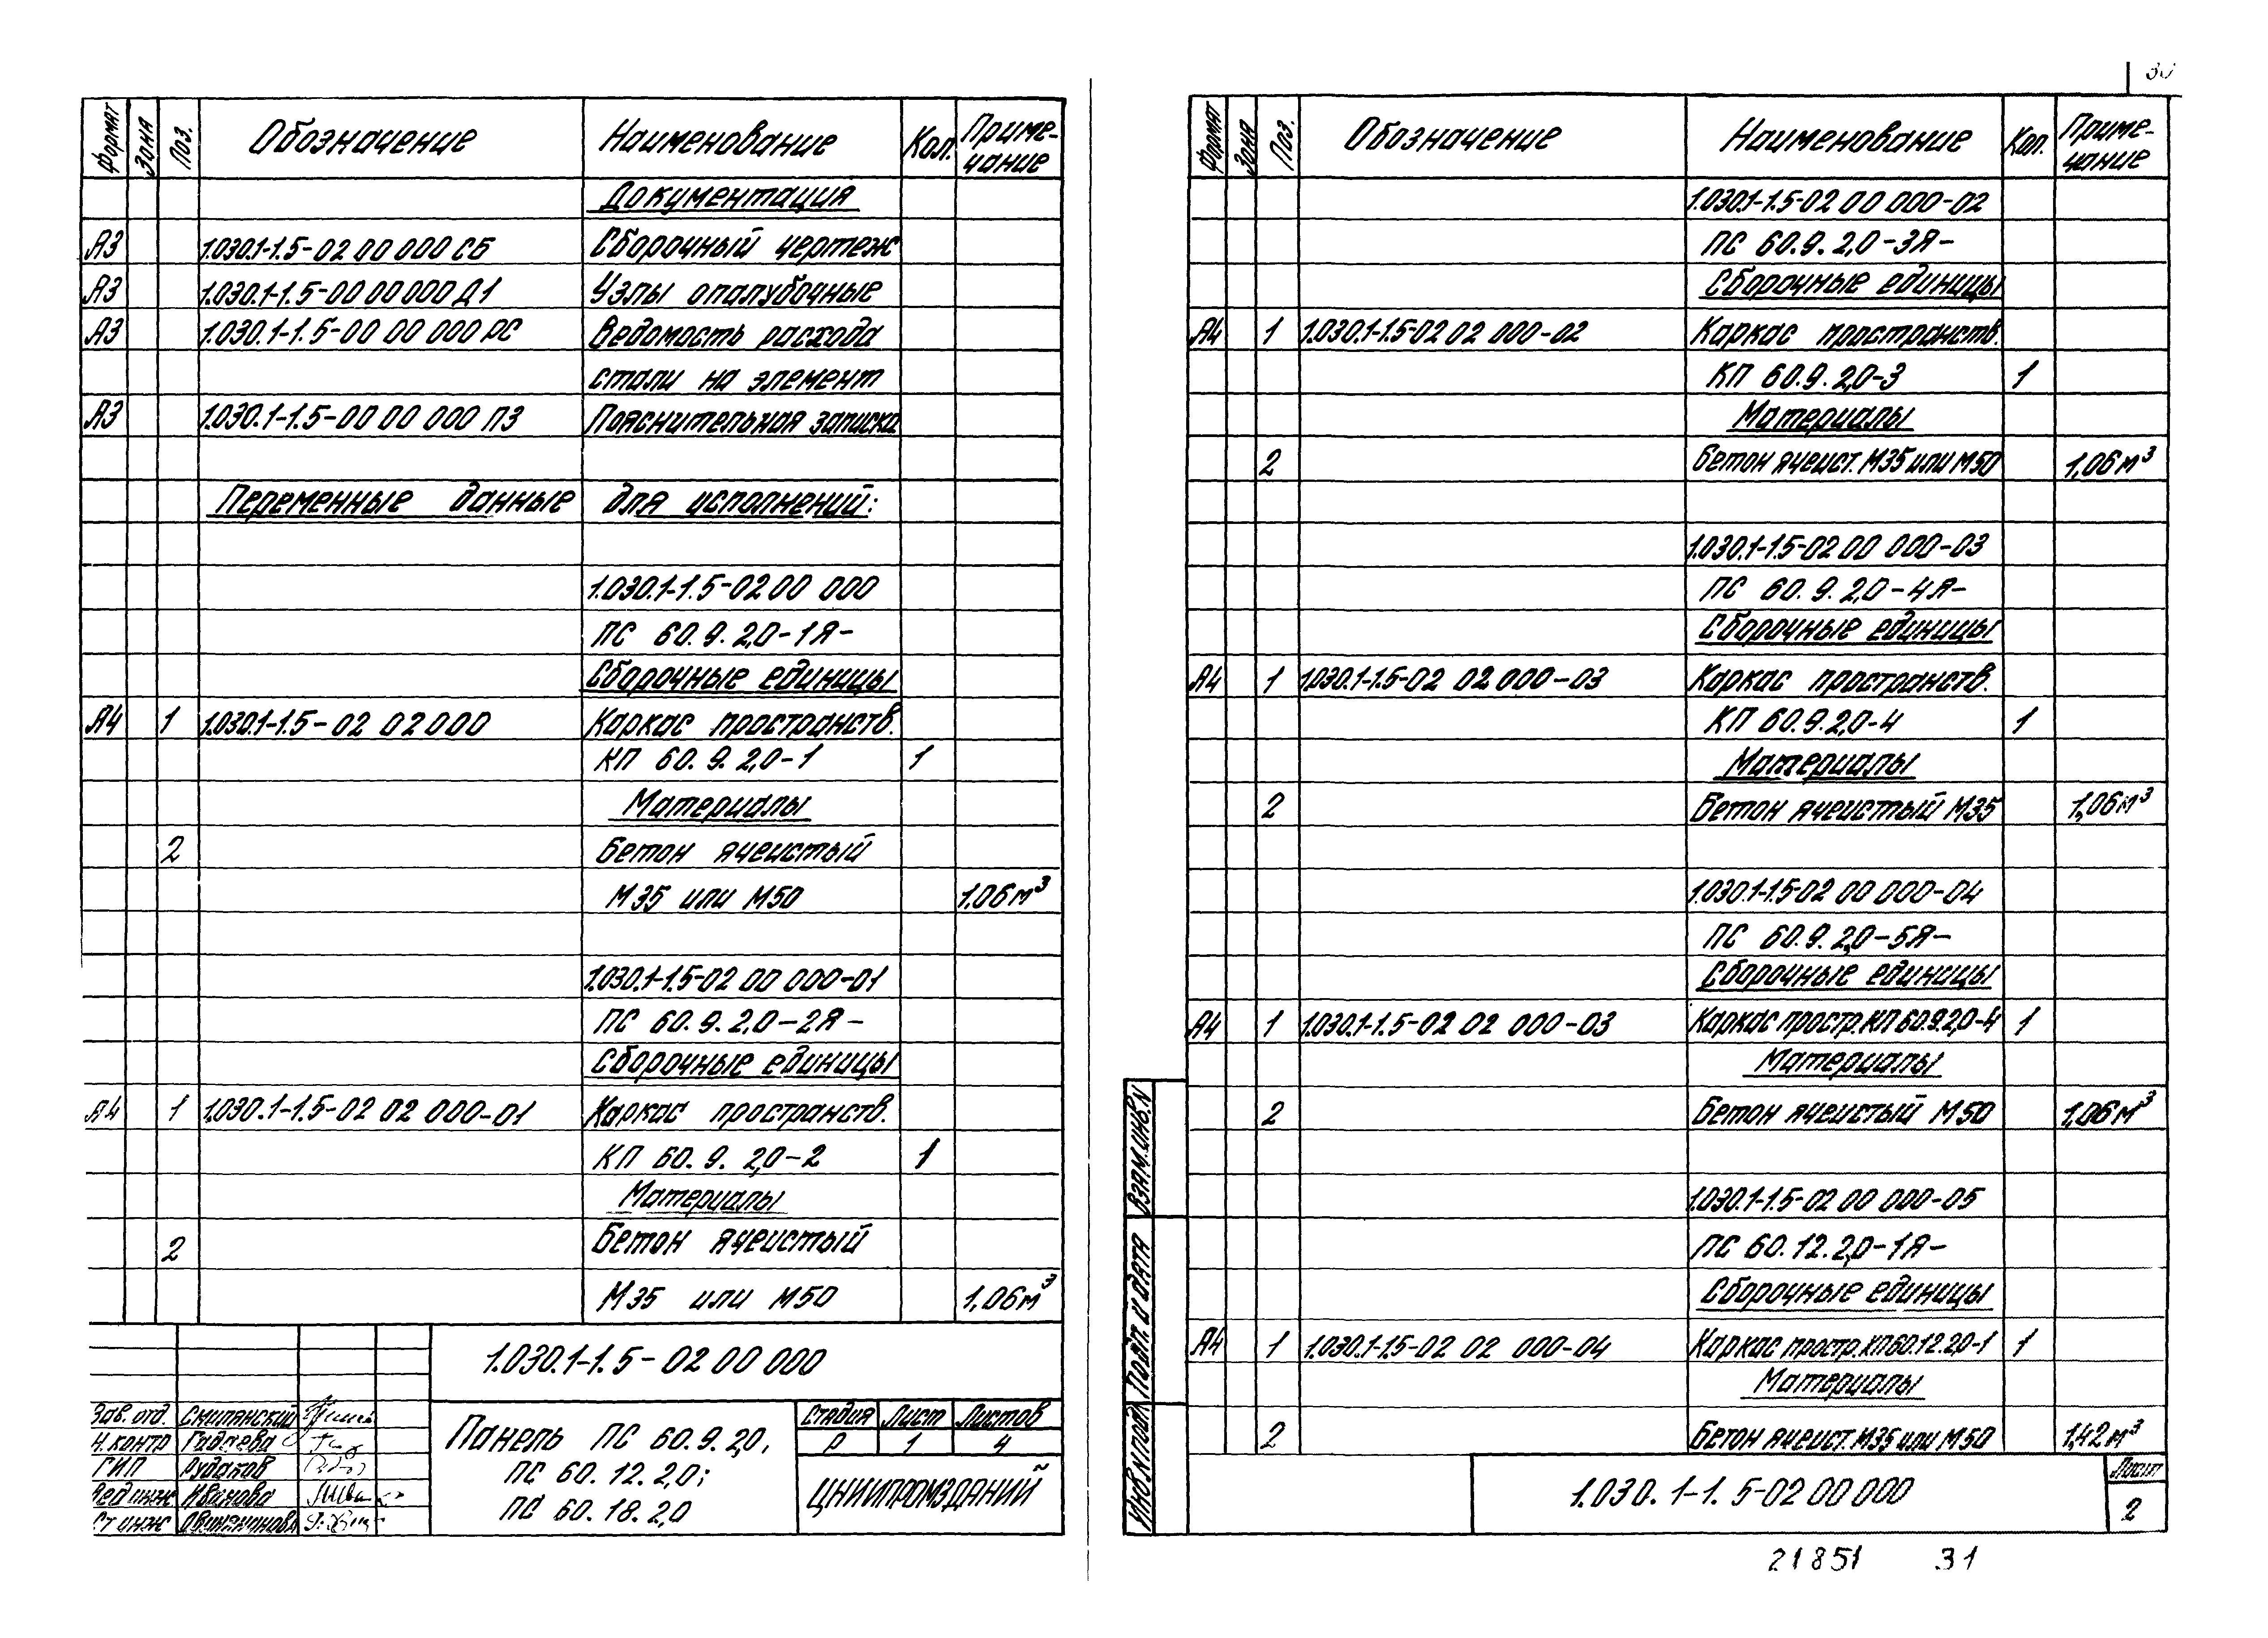 Формат Зона Поз. Обозначение Наименование Кол. Приме-
чание
Документация
А3 1.030.1-1.5-02 00 000 СБ Сборочный чертеж
А3 1.030.1-1.5-00 00 000 Д1 Узлы опалубочные
А3 1.030.1-1.5-00 00 000 РС Ведомость расхода
стали на элемент
А3 1.030.1-1.5-00 00 000 ПЗ Пояснительная записка
Переменные данные для исполнений:
1.030.1-1.5-02 00 000
ПС 60.9.2,0-1Я-
Сборочные единицы
А4 1 1.030.1-1.5-02 02 000 Каркас пространств.
КП 60.9.2,0-1 1
Материалы
2 Бетон ячеистый
М35 или М50 1,06м³
1.030.1-1.5-02 00 000-01
ПС 60.9.2,0-2Я-
Сборочные единицы
А4 1 1.030.1-1.5-02 02 000-01 Каркас пространств.
КП 60.9.2,0-2 1
Материалы
2 Бетон ячеистый
М35 или М50 1,06м³
1.030.1-1.5-02 00 000
Зав. отд. Смилянский
Н. контр Гадаева
ГИП Рудаков
Вед инж Иванова
Ст инж
Панель ПС 60.9.2,0,
ПС 60.12.2,0;
ПС 60.18.2,0
Стадия Лист Листов
Р 1 4
ЦНИИПРОМЗДАНИЙ
30
Формат Зона Поз. Обозначение Наименование Кол. Приме-
чание
1.030.1-1.5-02 00 000-02
ПС 60.9.2,0-3Я-
Сборочные единицы
А4 1 1.030.1-1.5-02 02 000-02 Каркас пространств.
КП 60.9.2,0-3 1
Материалы
2 Бетон ячеист. М35 или М50 1,06м³
1.030.1-1.5-02 00 000-03
ПС 60.9.2,0-4Я-
Сборочные единицы
А4 1 1.030.1-1.5-02 02 000-03 Каркас пространств.
КП 60.9.2,0-4 1
Материалы
2 Бетон ячеистый М35 1,06м³
1.030.1-1.5-02 00 000-04
ПС 60.9.2,0-5Я-
Сборочные единицы
А4 1 1.030.1-1.5-02 02 000-03 Каркас простр. КП 60.9.2,0-4 1
Материалы
2 Бетон ячеистый М50 1,06м³
1.030.1-1.5-02 00 000-05
ПС 60.12.2,0-1Я-
Сборочные единицы
А4 1 1.030.1-1.5-02 02 000-04 Каркас простр. КП 60.12.2,0-1 1
Материалы
2 Бетон ячеист. М35 или М50 1,42м³
Взам. инв. N
Подп. и дата
Инв. N подл.
1.030.1-1.5-02 00 000
Лист
2
21851 31